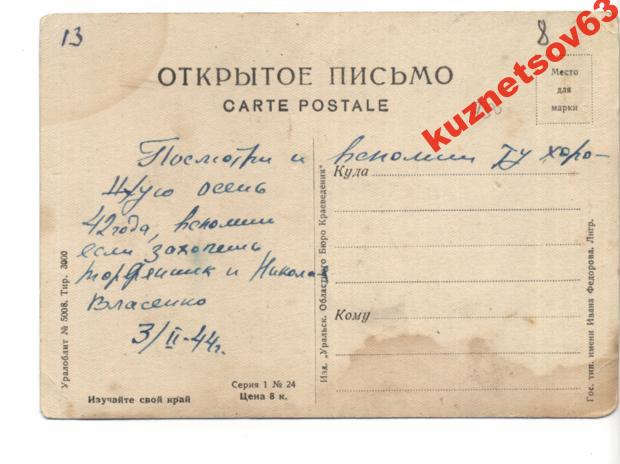 13
8
kuznetsov63
ОТКРЫТОЕ ПИСЬМО
CARTE POSTALE
Место
для
марки
Посмотри и вспомни ту хоро-
шую осень
42 года, вспомни
если захочешь
и Николая
Власенко
3/II-44г.
Куда
Кому
Уралоблит № 5008. Тир. 3000
Изд. „Уральск. Областного Бюро Краеведения"
Гос. тип. имени Ивана Федорова. Лнгр.
Изучайте свой край
Серия 1 № 24
Цена 8 к.